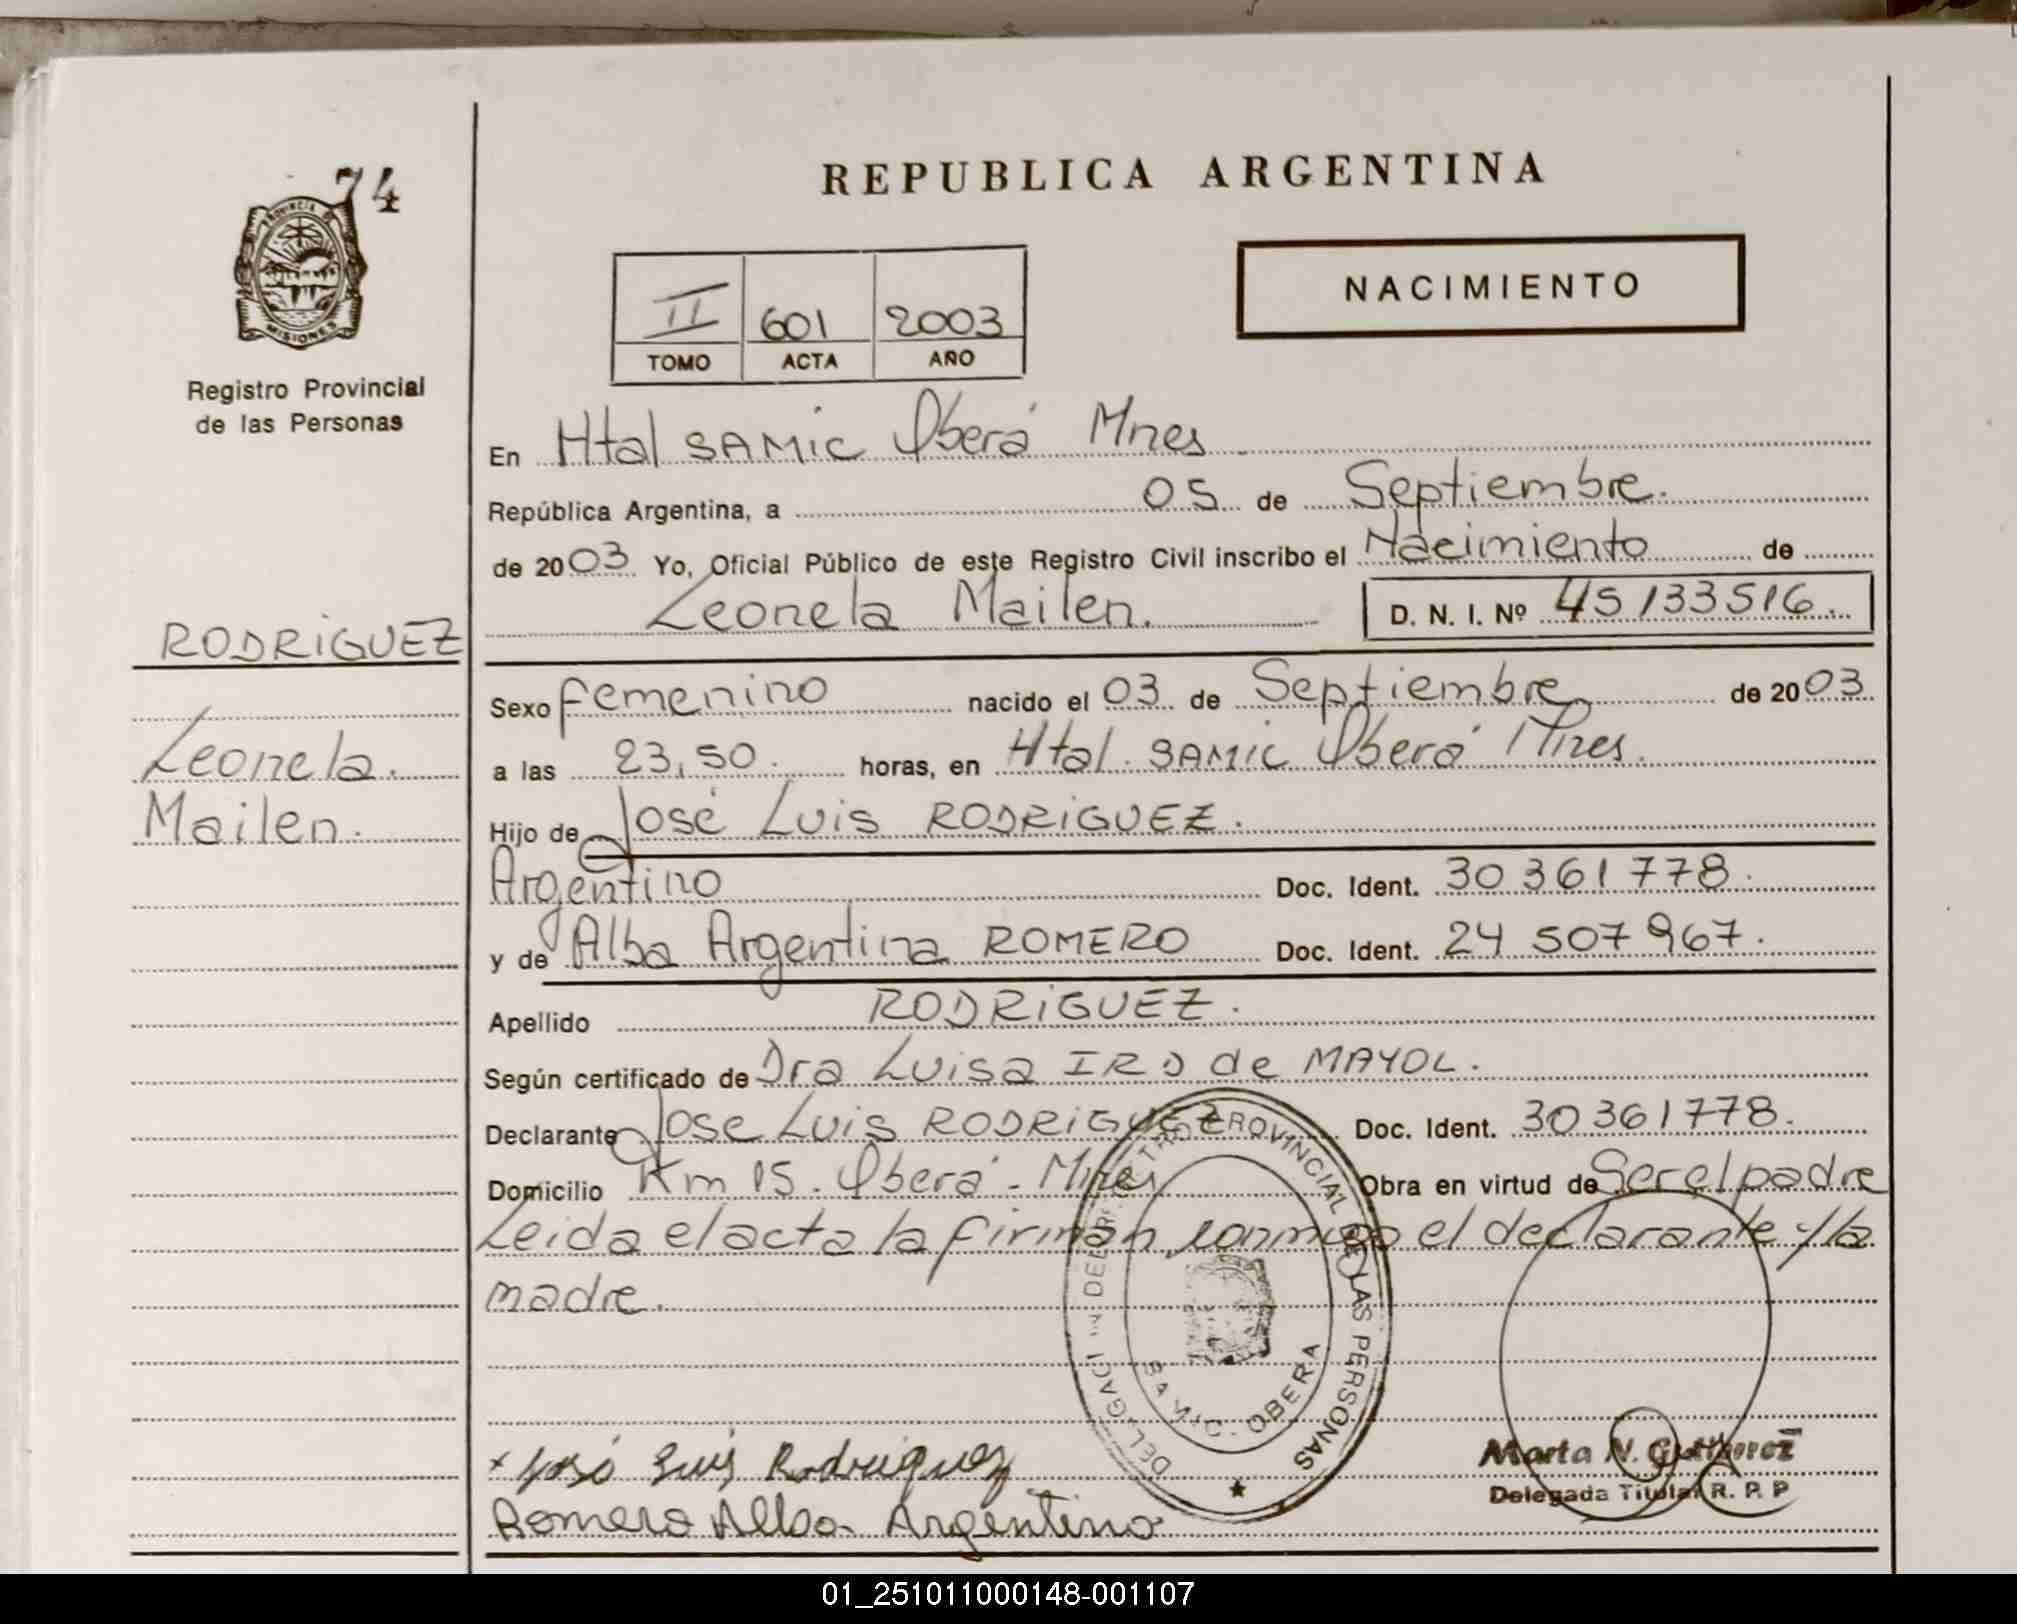 74
PROVINCIA DE
MISIONES
Registro Provincial
de las Personas
REPUBLICA ARGENTINA
NACIMIENTO
II 601 2003
TOMO ACTA AÑO
En Htal SAMIC Oberá Mnes
República Argentina, a 05 de Septiembre.
de 2003 Yo, Oficial Público de este Registro Civil inscribo el Nacimiento de
Leonela Mailen. D. N. I. Nº 45133516.
RODRIGUEZ
Leonela.
Mailen.
Sexo femenino nacido el 03 de Septiembre de 2003
a las 23,50. horas, en Htal. SAMIC Oberá Mnes.
Hijo de José Luis RODRIGUEZ.
Argentino Doc. Ident. 30 361 778.
y de Alba Argentina ROMERO Doc. Ident. 24 507 967.
Apellido RODRIGUEZ.
Según certificado de Dra Luisa IRD de MAYOL.
Declarante Jose Luis RODRIGUEZ Doc. Ident. 30 361778.
Domicilio Km 15. Oberá - Mnes Obra en virtud de Ser el padre
Leida el acta la firman conmigo el declarante y la
madre.
PROVINCIAL DE LAS PERSONAS
SAMIC - OBERA
José Luis Rodriguez
Romero Alba Argentina
Marta N. Gutierrez
Delegada Titular R. P. P
01_251011000148-001107